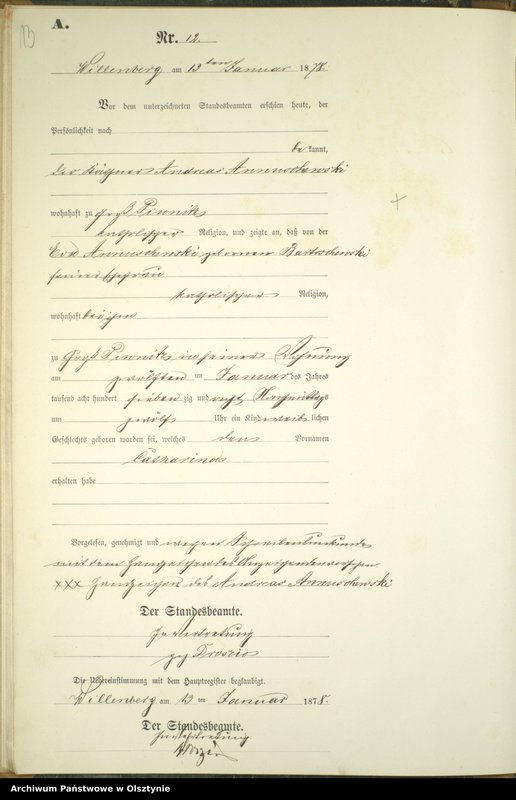 13
A.
Nr. 12.
Willenberg am 13 ten Januar 1878.
Vor dem unterzeichneten Standesbeamten erschien heute, der
Persönlichkeit nach
be kannt,
der Käthner Andreas Annuschewski
wohnhaft zu Groß Piwnitz
katholischer Religion, und zeigte an, daß von der
Eva Annuschewski geborenen Bartschewski
seiner Ehefrau
katholischer Religion,
wohnhaft bei ihm
zu Groß Piwnitz in seiner Wohnung
am zwölften ten Januar des Jahres
tausend acht hundert sieben zig und acht Nachmittags
um zwölf Uhr ein Kind weib lichen
Geschlechts geboren worden sei, welches den Vornamen
Catharina
erhalten habe
Vorgelesen, genehmigt und wegen Schreibensunkunde
mit dem Handzeichen des Anzeigenden versehen.
XXX Handzeichen des Andreas Annuschewski
Der Standesbeamte.
In Vertretung
gez
Die Uebereinstimmung mit dem Hauptregister beglaubigt.
Willenberg am 13 ten Januar 1878.
Der Standesbeamte.
In Vertretung
Archiwum Państwowe w Olsztynie